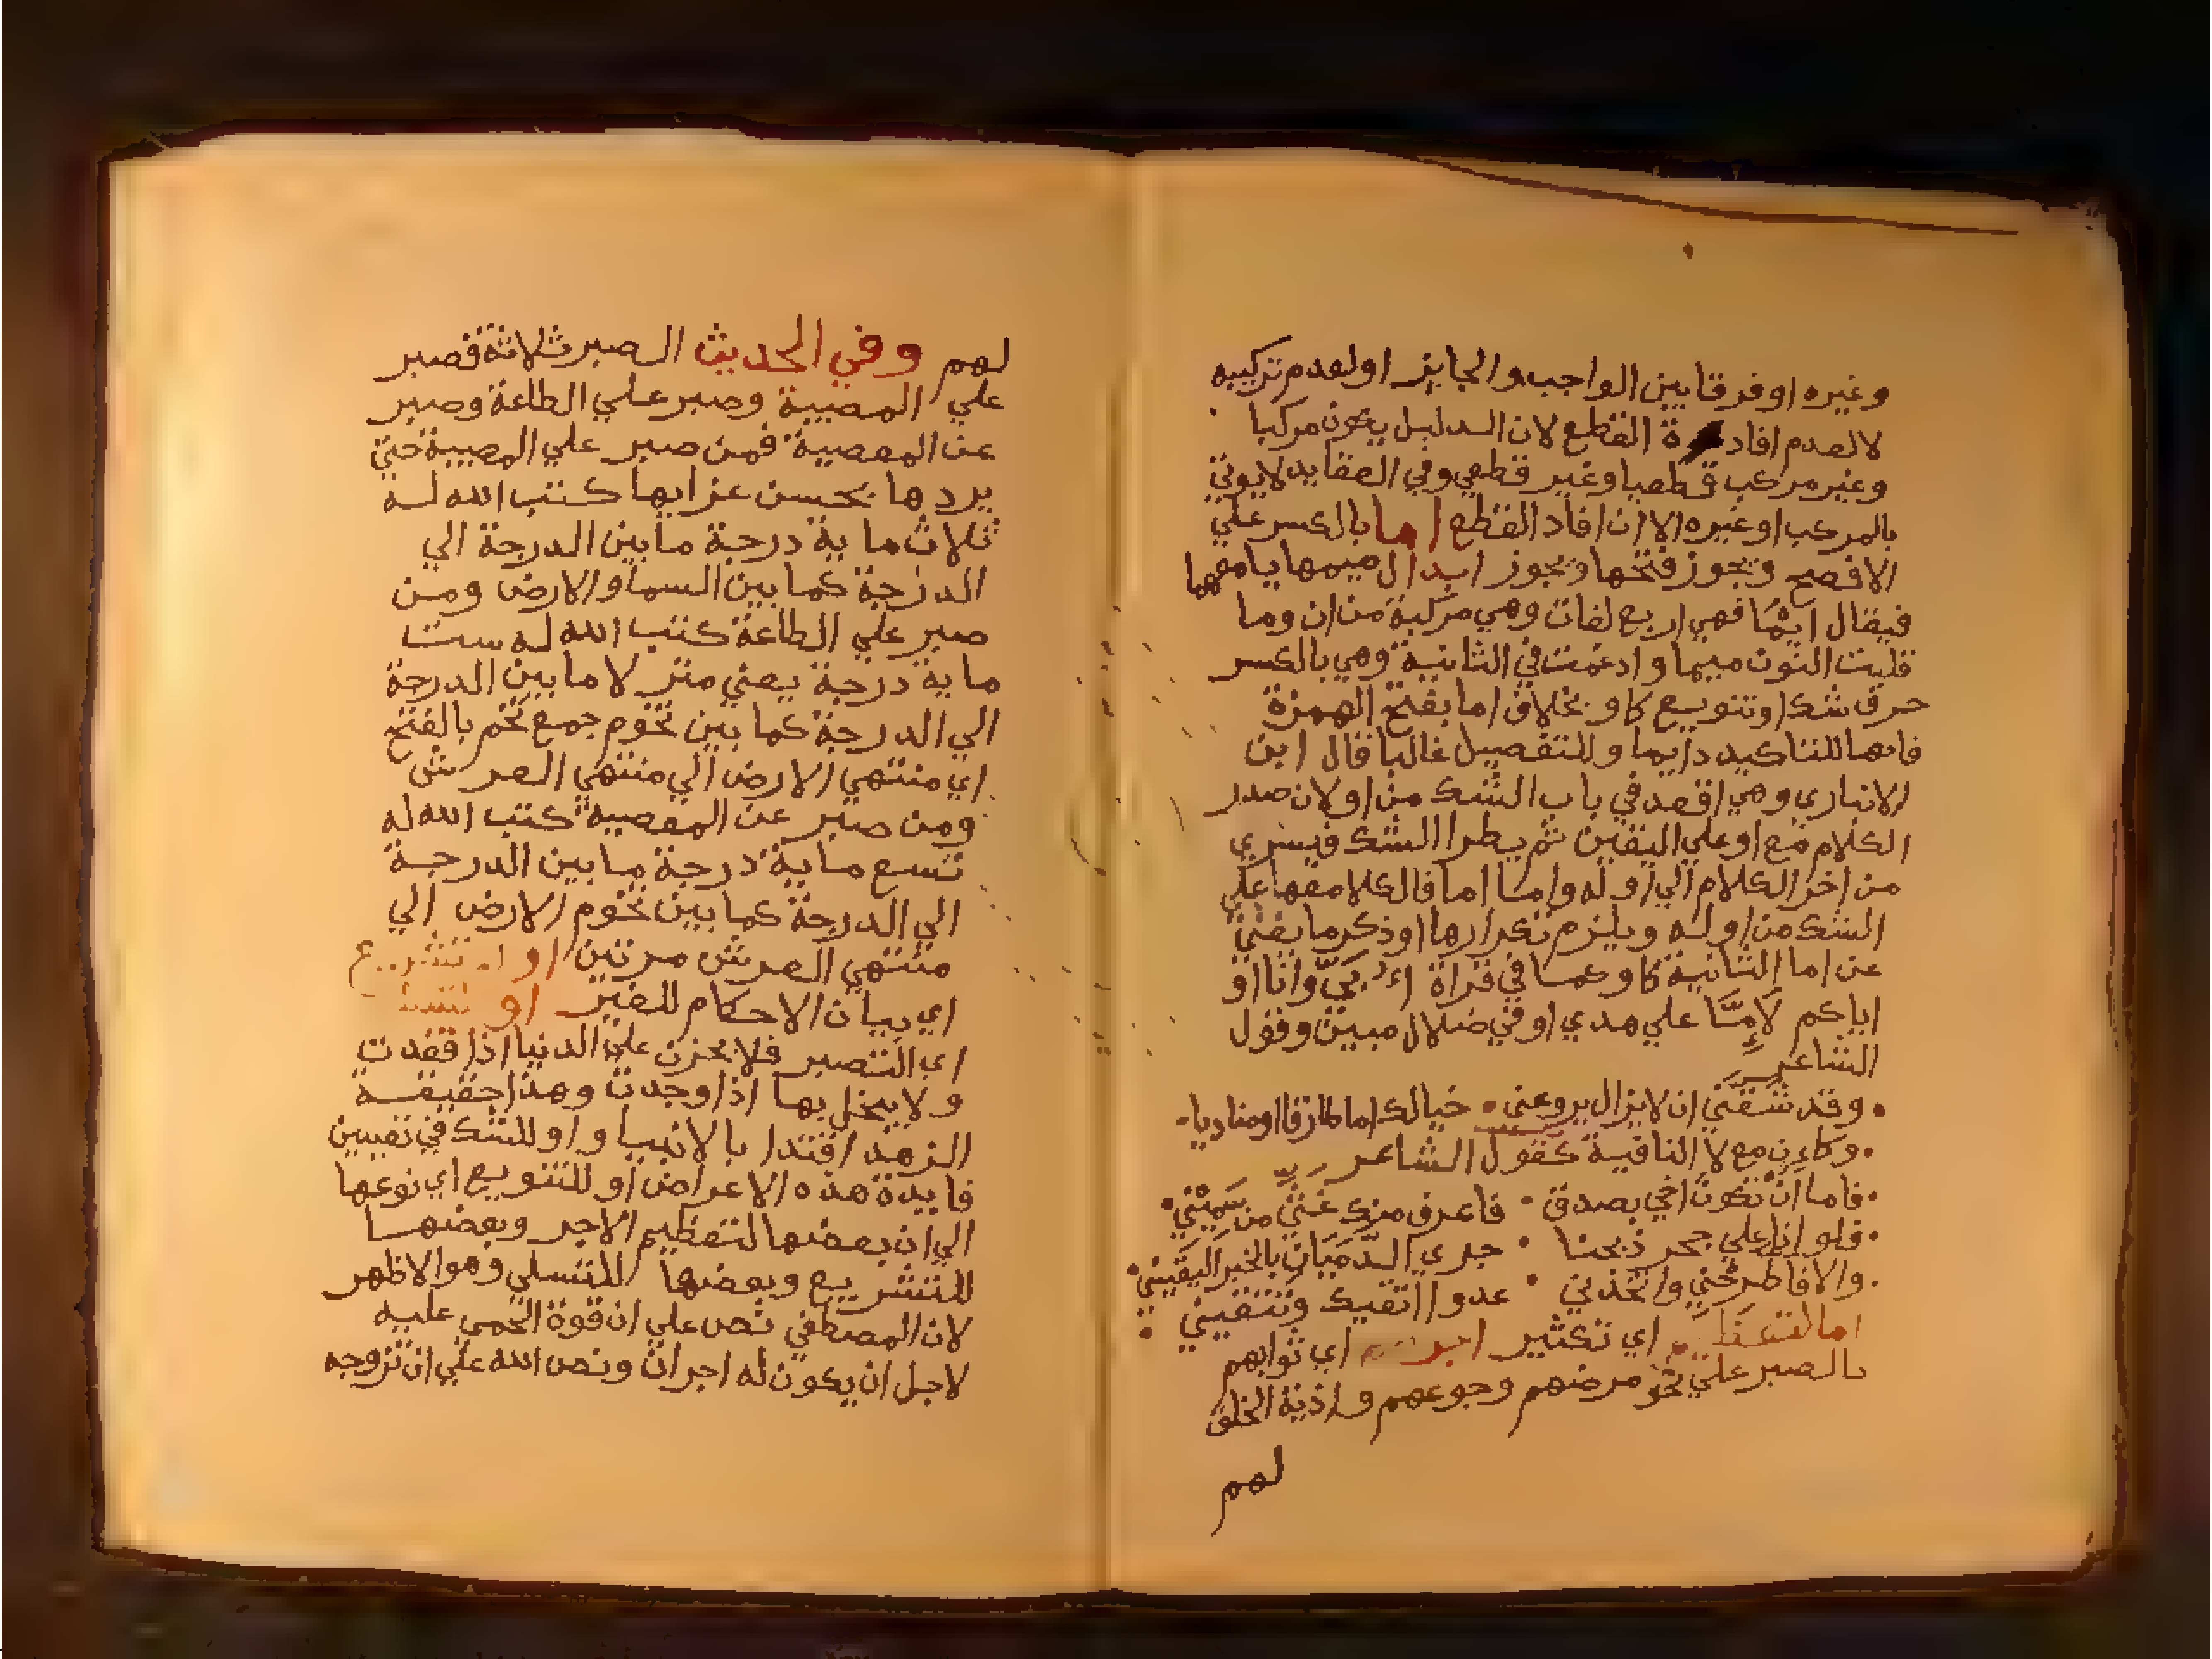 وغيره او فرقا بين الواجب والجايز او لعدم تركيبه
لا لعدم افادة القطع لان الدليل يكون مركبا
وغير مركب قطعيا وغير قطعي وفي العقايد لا يوتي
بالمركب او غيره الا ان افاد القطع اما بالكسر علي
الافصح ويجوز فتحها ويجوز ابدال ميمها يا معهما
فيقال ايما فهي اربع لغات وهي مركبة من ان وما
قلبت النون ميما وادغمت في الثانية وهي بالكسر
حرف شك او تنويع كاو بخلاف اما بفتح الهمزة
فانها للتاكيد دايما وللتفصيل غالبا قال ابن
الانباري وهي اقعد في باب الشك من او لان صدر
الكلام مع او علي اليقين ثم يطرا الشك فيسري
من اخر الكلام الي اوله واما اما فالكلام معها علي
الشك من اوله ويلزم تكرارها او ذكر ما يغني
عن اما الثانية كاو كما في قراة ابي وانا او
اياكم لإما علي هدي او في ضلال مبين وقول
الشاعر
وقد شفني ان لا يزال يروعني خيالك اما طارقا او مناديا
وكان مع لا النافية كقول الشاعر
فاما ان تكون اخي بصدق فاعرف منك غثي من سميني
فلو انا علي حجر ذبحنا جري الدميان بالخبر اليقيني
والا فاطرحني واتخذني عدوا اتقيك وتتقيني
اما لتعظيم اي تكثير اجرهم اي ثوابهم
بالصبر علي نحو مرضهم وجوعهم واذية الخلق
لهم
لهم وفي الحديث الصبر ثلاثة فصبر
علي المصيبة وصبر علي الطاعة وصبر
عن المعصية فمن صبر علي المصيبة حتي
يردها بحسن عزايها كتب الله له
ثلاث ماية درجة ما بين الدرجة الي
الدرجة كما بين السما والارض ومن
صبر علي الطاعة كتب الله له ست
ماية درجة يعني منزلا ما بين الدرجة
الي الدرجة كما بين تخوم جمع تخم بالفتح
اي منتهي الارض الي منتهي العرش
ومن صبر عن المعصية كتب الله له
تسع ماية درجة ما بين الدرجة
الي الدرجة كما بين تخوم الارض الي
منتهي العرش مرتين او
اي بيان الاحكام للغير او
اي التصبر فلا يحزن علي الدنيا اذا فقدت
ولا يبخل بها اذا وجدت وهذا حقيقه
الزهد اقتدا بالانبيا واو للشك في تعيين
فايدة هذه الاعراض او للتنويع اي نوعها
الي ان بعضها لتعظيم الاجر وبعضها
للتشريع وبعضها للتسلي وهو الاظهر
لان المصطفي نص علي ان قوة الحمي عليه
لاجل ان يكون له اجران ونص الله علي ان تزوجه